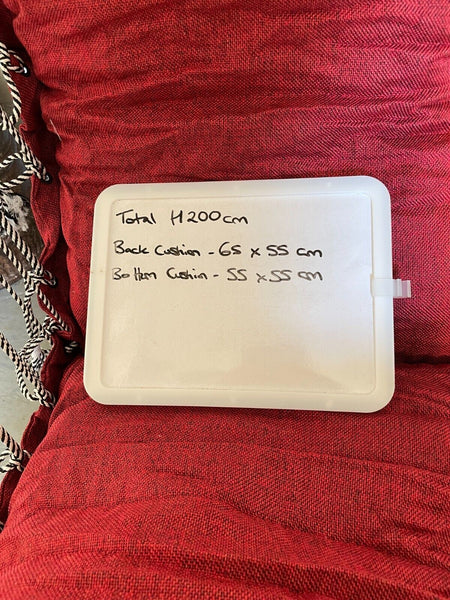 Total H 200cm
Back Cushion - 65 x 55 cm
Bottom Cushion - 55 x 55 cm